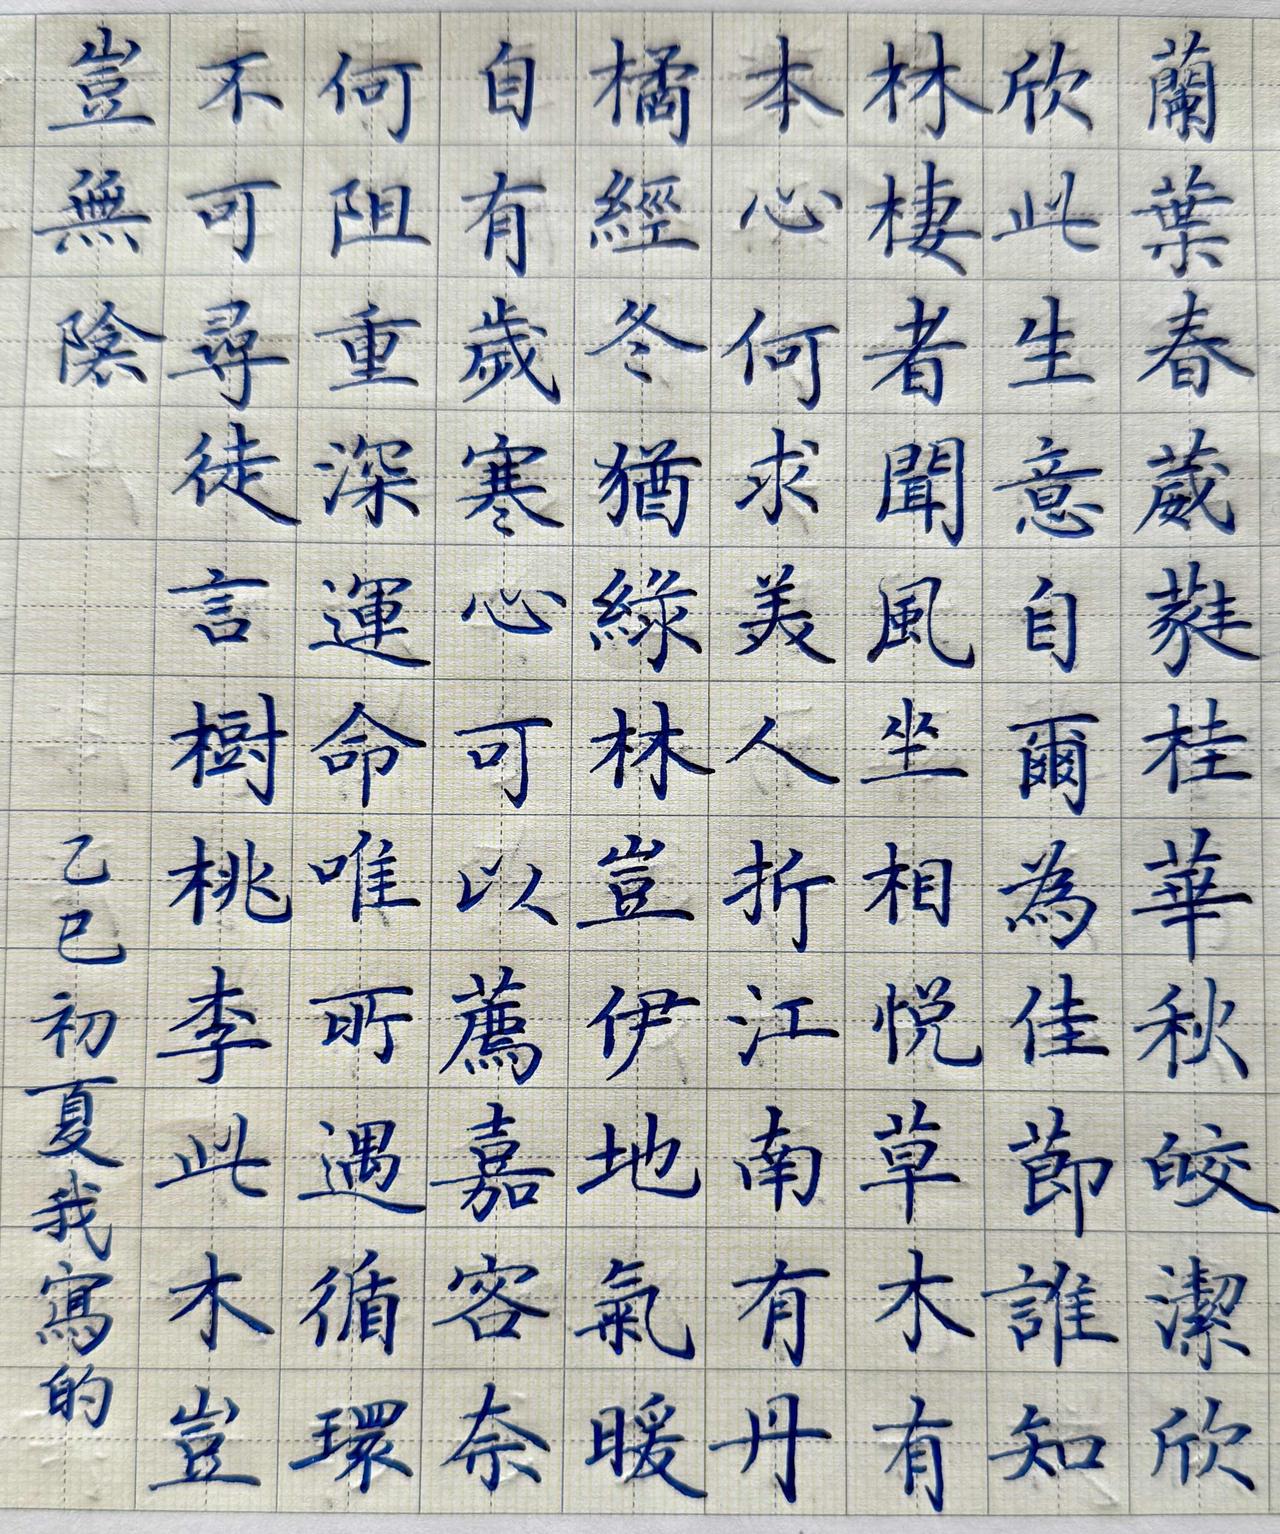 蘭葉春葳蕤桂華秋皎潔欣
欣此生意自爾為佳節誰知
林棲者聞風坐相悅草木有
本心何求美人折江南有丹
橘經冬猶綠林豈伊地氣暖
自有歲寒心可以薦嘉容奈
何阻重深運命唯所遇循環
不可尋徒言樹桃李此木豈
豈無陰
乙巳初夏我寫的